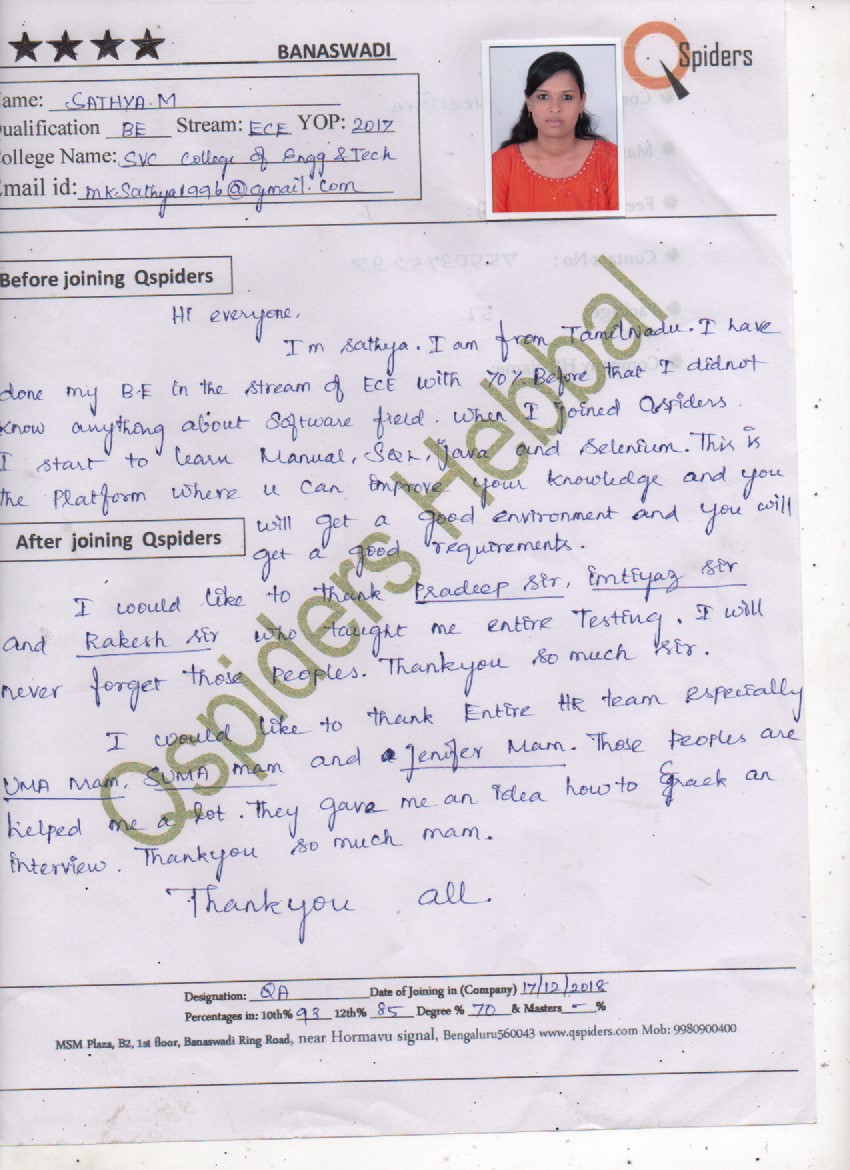 BANASWADI
QSpiders
ame: SATHYA.M
ualification BE Stream: ECE YOP: 2017
ollege Name: SVC College of Engg & Tech
mail id: mk.sathya1996@gmail.com
Before joining Qspiders
Hi everyone,
I'm sathya. I am from TamilNadu. I have
done my B.E in the stream of ECE with 70% Before that I didnot
know anything about Software field. When I joined Qspiders
I start to learn Manual, SQL, Java and Selenium. This is
the Platform where u can improve your knowledge and you
will get a good environment and you will
After joining Qspiders
get a good requirements.
I would like to thank Pradeep sir, imtiyaz sir
and Rakesh sir who taught me entire Testing. I will
never forget those Peoples. Thankyou so much sir.
I would like to thank Entire HR team especially
UMA Mam, SUMA mam and Jenifer Mam. Those Peoples are
helped me a lot. They gave me an idea how to crack an
interview. Thankyou so much mam.
Thankyou all.
Qspiders Hebbal
Designation: QA Date of Joining in (Company) 17/12/2018
Percentages in: 10th% 93 12th% 85 Degree % 70 & Masters - %
MSM Plaza, B2, 1st floor, Banaswadi Ring Road, near Hormavu signal, Bengaluru560043 www.qspiders.com Mob: 9980900400